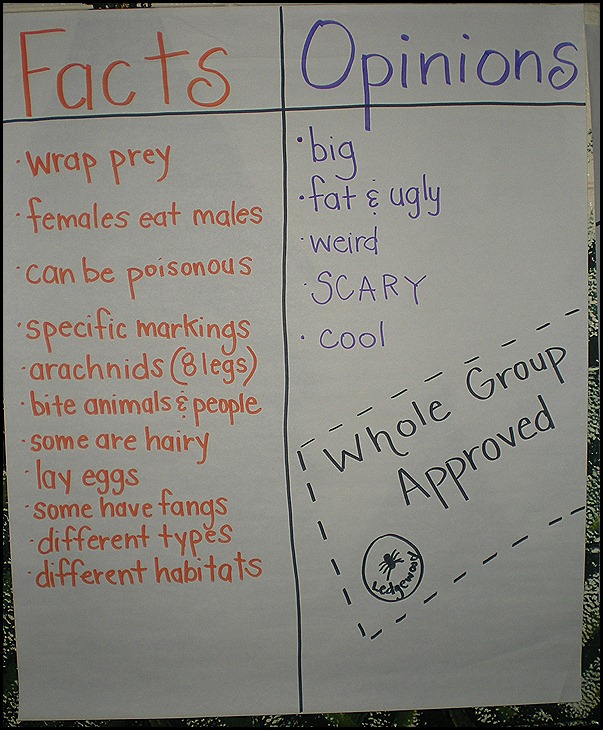 Facts
· wrap prey
· females eat males
· can be poisonous
· specific markings
· arachnids (8 legs)
· bite animals & people
· some are hairy
· lay eggs
· some have fangs
· different types
· different habitats
Opinions
· big
· fat & ugly
· weird
· SCARY
· cool
Whole Group
Approved
Ledgewood